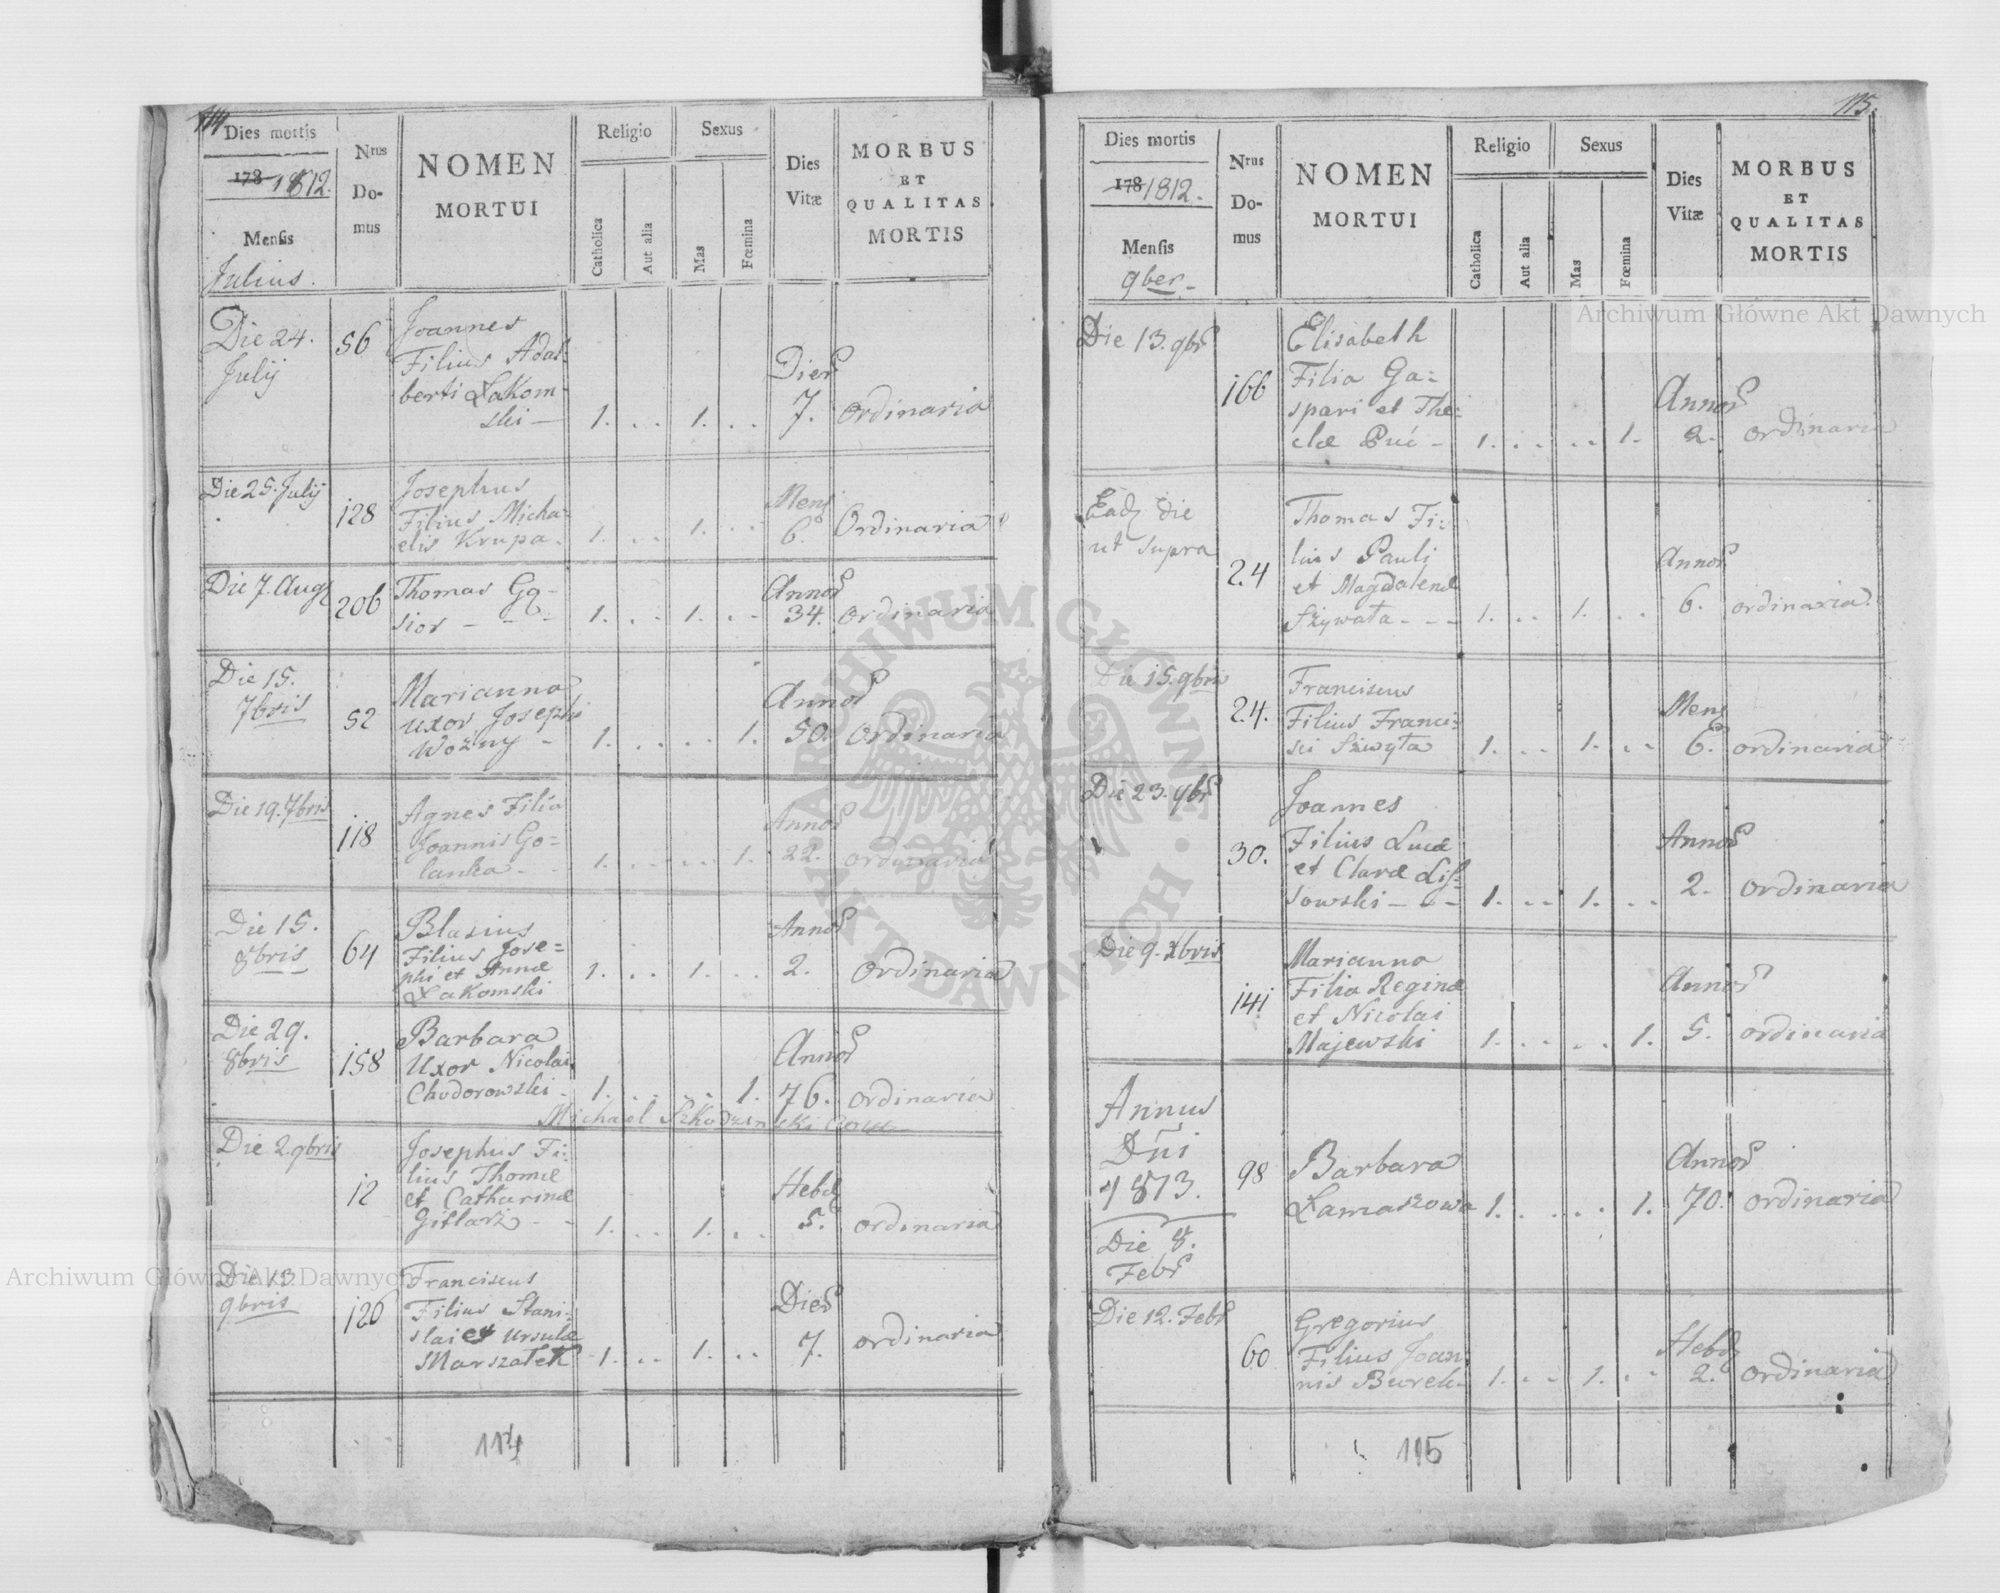 114
Dies mortis
178 1812.
Mensis
Julius.
Nrus
Do-
mus
NOMEN
MORTUI
Religio
Catholica
Aut alia
Sexus
Mas
Fœmina
Dies
Vitæ
MORBUS
ET
QUALITAS
MORTIS
Die 24.
Julij
56
Joannes
Filius Adal-
berti Łakom-
ski —
1. . . 1. . .
Dier
7.
Ordinaria
Die 25. Julij
128
Josephus
Filius Micha-
elis Krupa -
1. . . 1. . .
Mens
6.
Ordinaria
Die 7. Aug
206
Thomas Gą-
sior - - -
1. . . 1. . .
Annor
34.
Ordinaria
Die 15.
7bris
52
Marianna
Uxor Josephi
Woźny -
1. . . . . 1.
Annor
50.
Ordinaria
Die 19. 7bris
118
Agnes Filia
Joannis Go-
lanka -
1. . . . . 1.
Annor
22.
ordinaria
Die 15.
8bris
64
Blasius
Filius Jose=
phi et Annæ
Łakomski
1. . . 1. . .
Annor
2.
Ordinaria
Die 29.
8bris
158
Barbara
Uxor Nicolai
Chodorowski -
1. . . . . 1.
Annor
76.
Ordinaria
Michael
Die 2. 9bris
12
Josephus Fi-
lius Thomæ
et Catharinæ
Gitlarz - -
1. . . 1. . .
Hebd
5.
ordinaria
Die 13
9bris
126
Franciscus
Filius Stani-
slai et Ursulæ
Marszałek
1. . . 1. . .
Dier
7.
ordinaria
114
115.
Dies mortis
178 1812.
Mensis
9ber -
Nrus
Do-
mus
NOMEN
MORTUI
Religio
Catholica
Aut alia
Sexus
Mas
Fœmina
Dies
Vitæ
MORBUS
ET
QUALITAS
MORTIS
Die 13. 9br
166
Elisabeth
Filia Ga-
spari et The-
clæ Puć -
1. . . . . 1.
Annor
2.
ordinaria
Ead die
ut supra
24
Thomas Fi-
lius Pauli
et Magdalenæ
Szywała - - -
1. . . 1. . .
Annor
6.
ordinaria.
Die 15. 9bris
24.
Franciscus
Filius Franci-
sci
1. . . 1. . .
Mens
6.
ordinaria
Die 23. 9br
30.
Joannes
Filius Lucæ
et Claræ Lis-
sowski - -
1. . . 1. . .
Annor
2.
Ordinaria
Die 9. Xbris
141
Marianna
Filia Reginæ
et Nicolai
Majewski
1. . . . . 1.
Annor
5.
ordinaria
Annus
Dñi
1813.
Die 8.
Febr
98
Barbara
Łamaszowa
1. . . . . 1.
Annor
70.
ordinaria
Die 12. Febr
60
Gregorius
Filius Joan-
nis Burek -
1. . . 1. . .
Hebd
2.
Ordinaria
115
Archiwum Główne Akt Dawnych
Archiwum Główne Akt Dawnych
ARCHIWUM GŁÓWNE AKT DAWNYCH